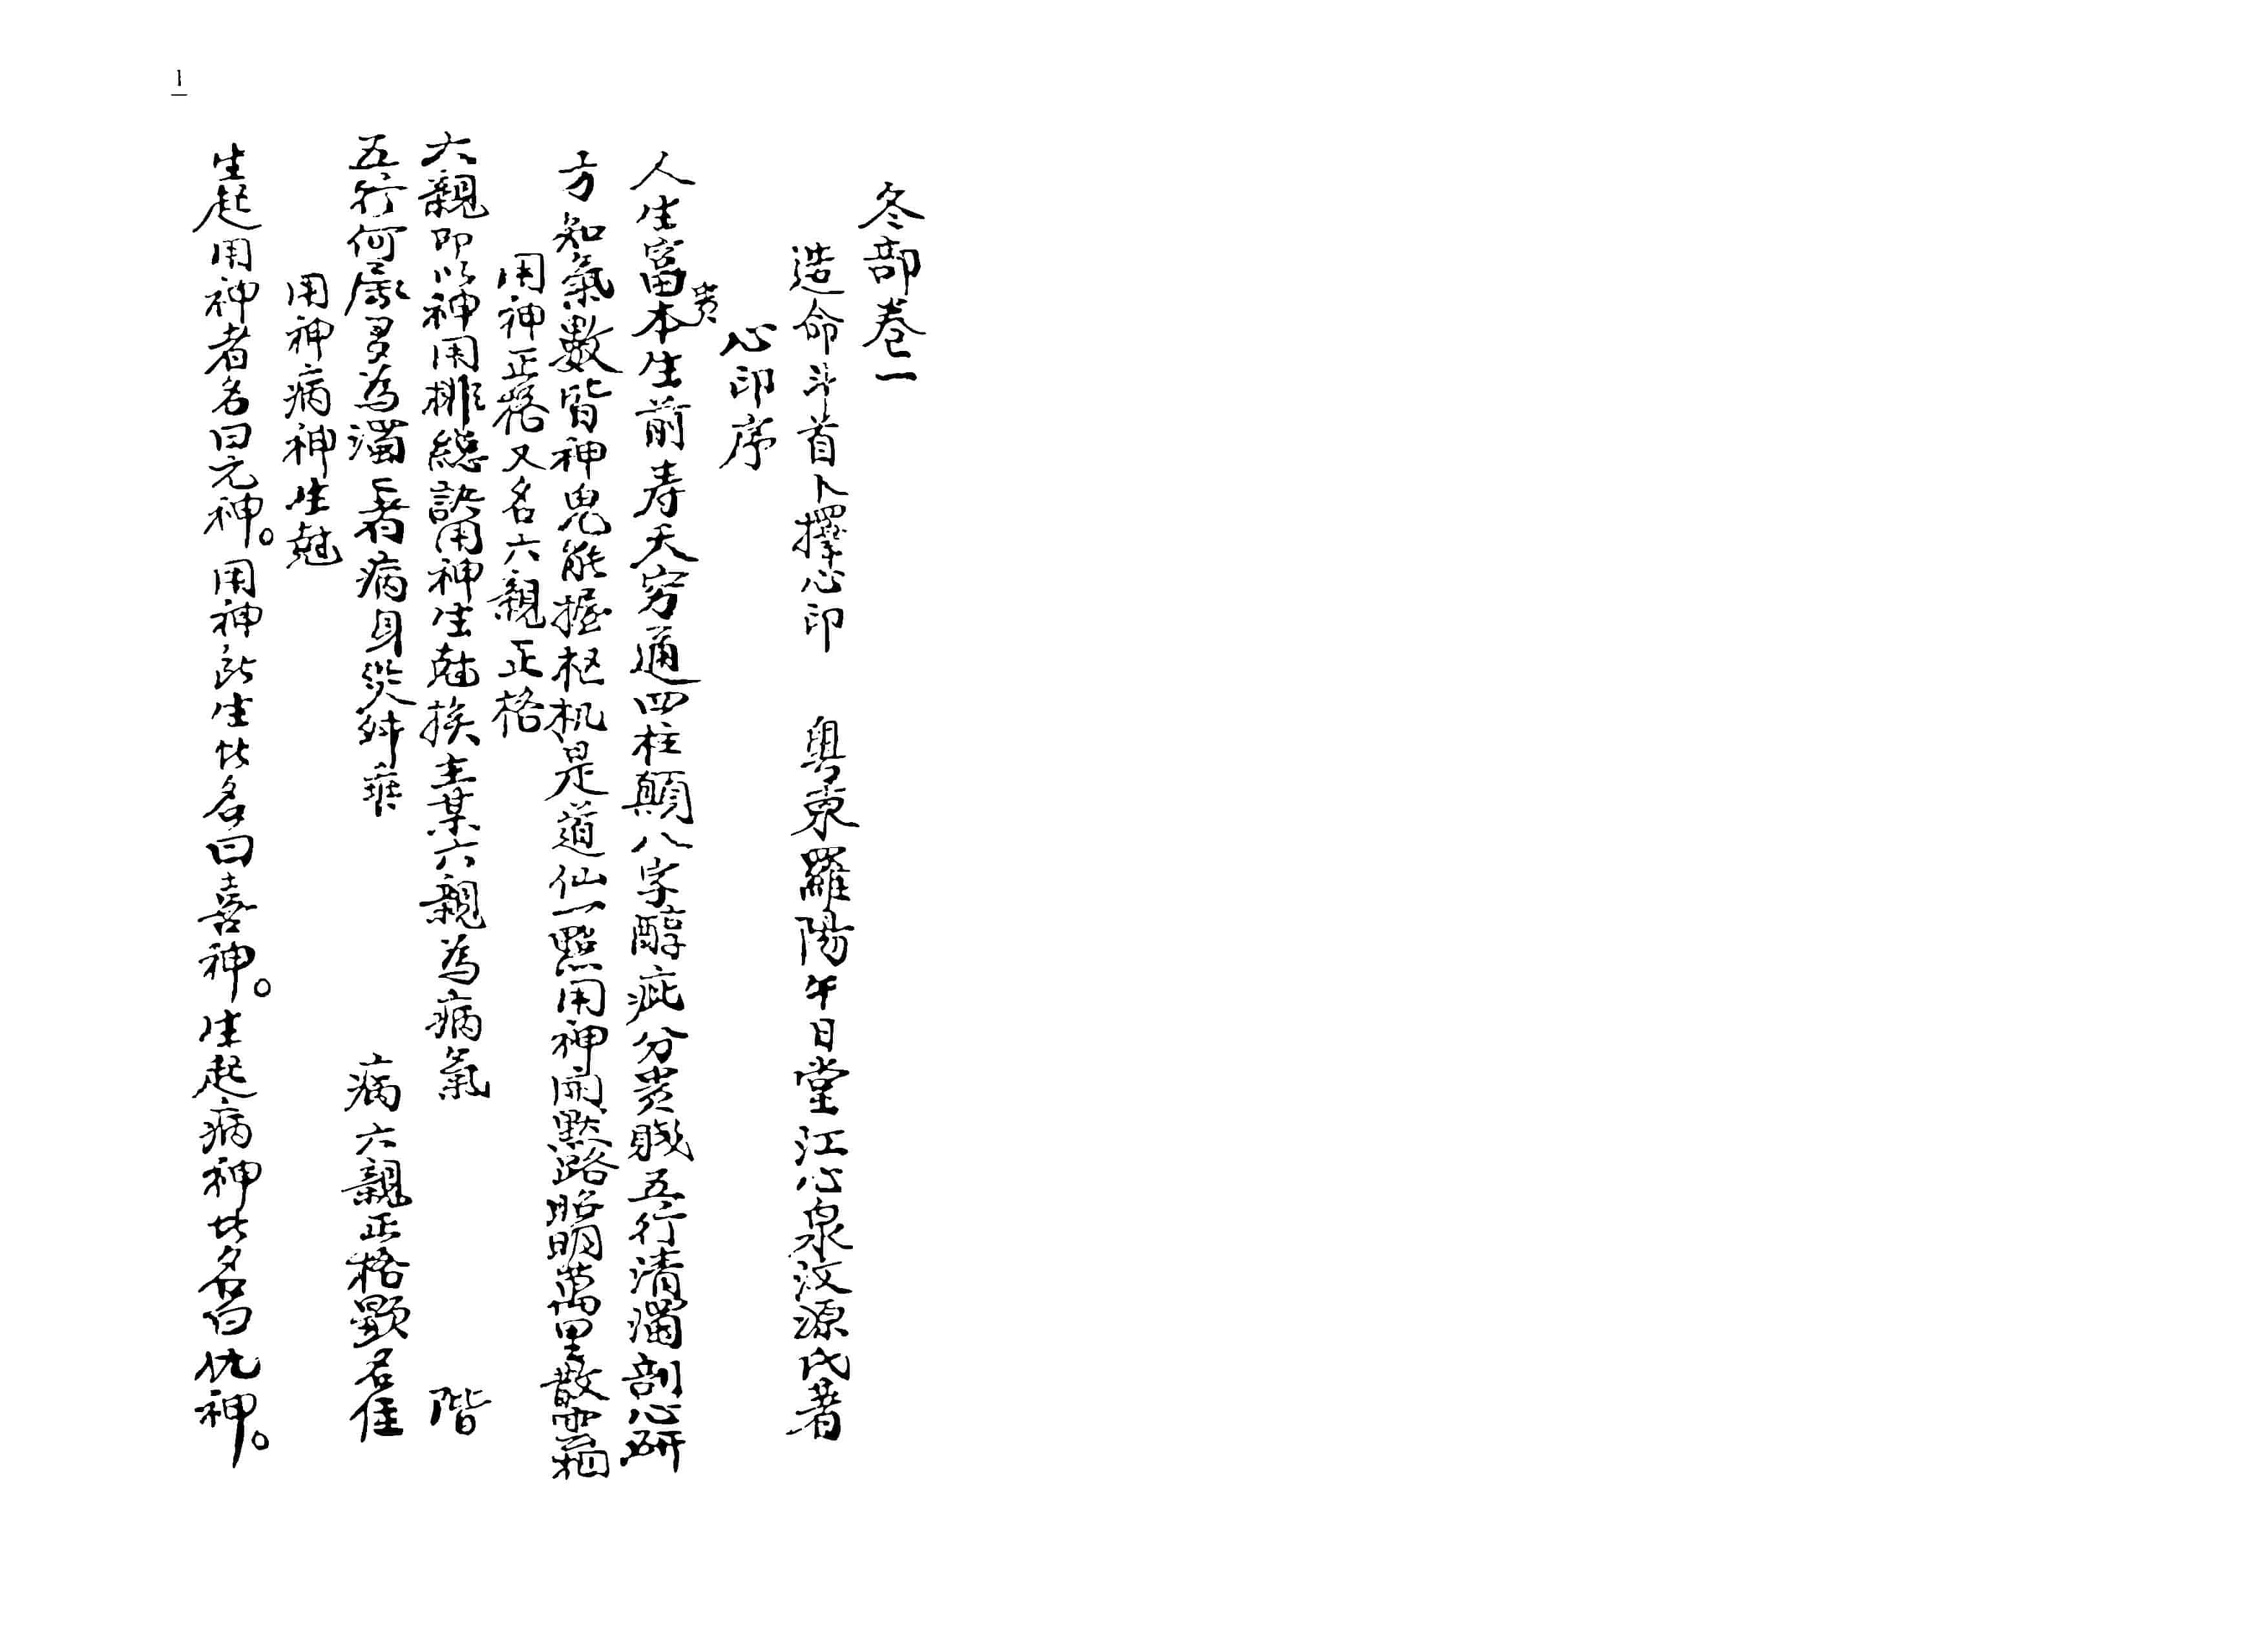 1
冬部卷一
造命斗首卜擇心印 粤東羅陽午日堂江心泉汶源氏著
心印序
人生富贵本生前寿夭穷通四柱顛八字醇疵分贵賤五行清濁剖心研
方知氣數皆神鬼能握枢机是道仙一點用神開黙路昭明萬里散雲烟
用神正格又名六親正格
六親即以神用排總訣用神生尅挨主某六親為病氣 階
五行何處多為濁看病身災舛 病六親正格顯名佳
用神病神生尅
生起用神者名曰元神。用神所生比名曰喜神。生起病神比名曰仇神。